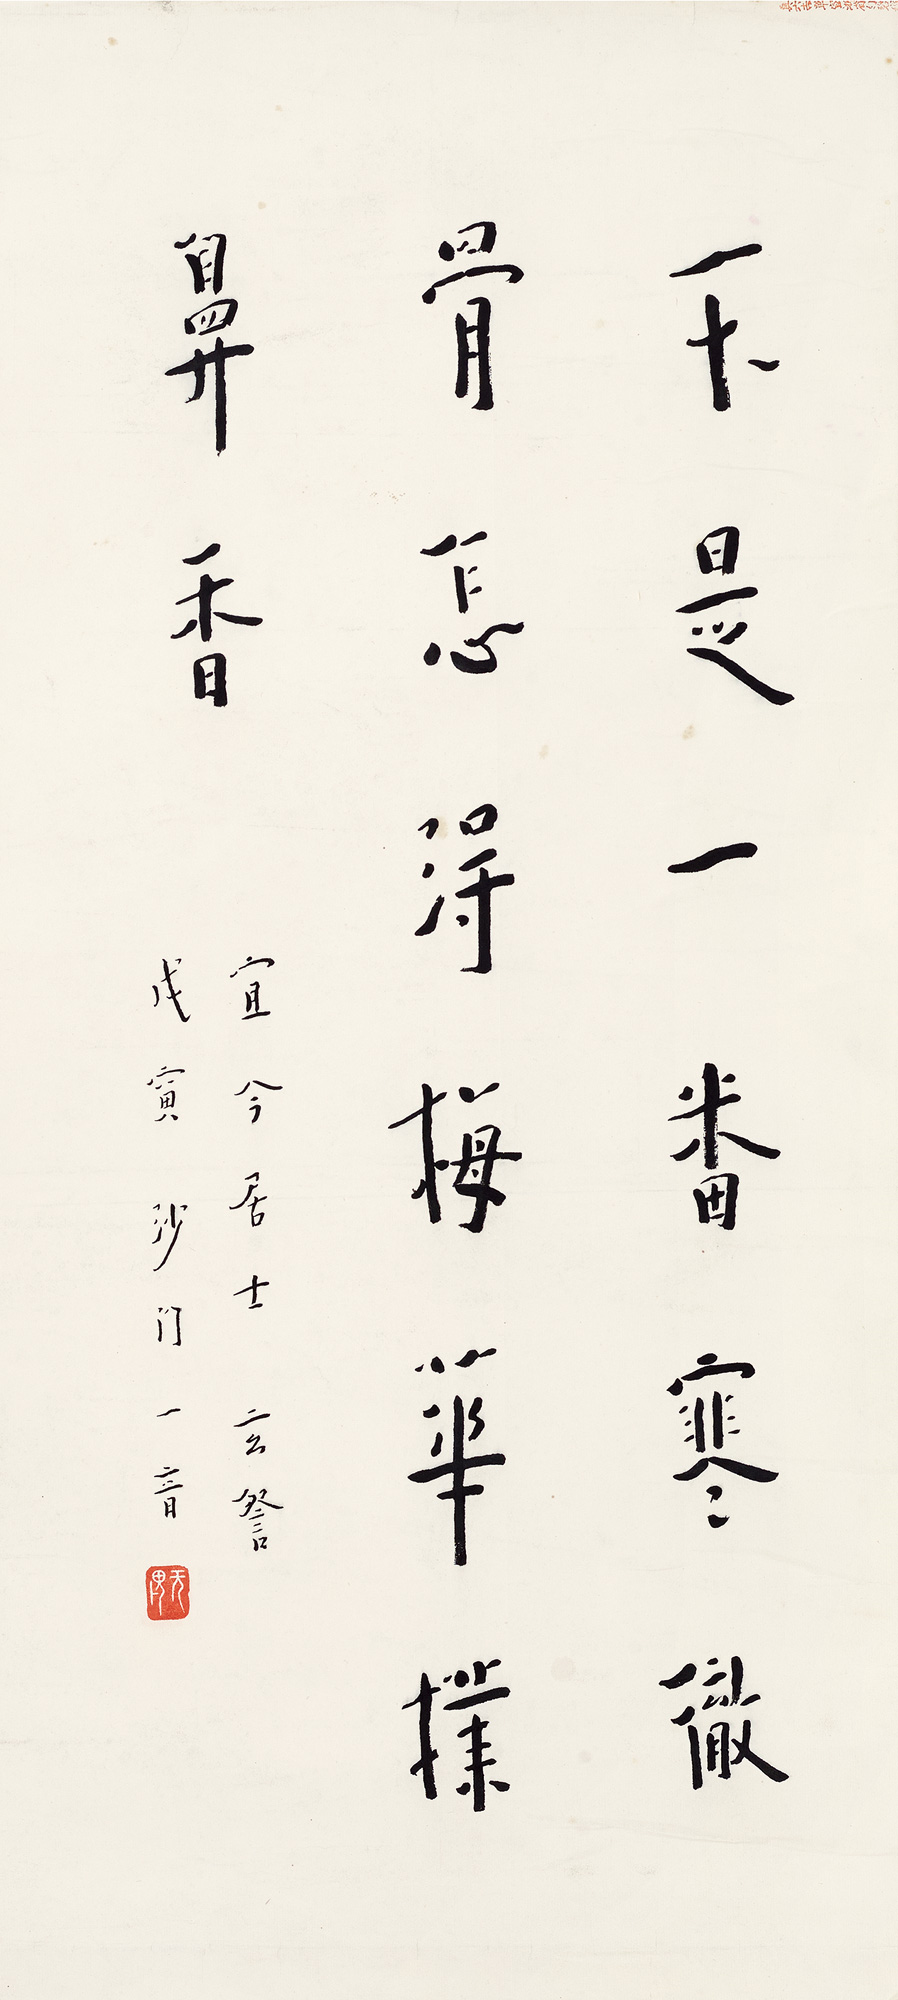 不是一番寒徹
骨怎得梅華撲
鼻香
宜今居士 玄詧
戊寅 沙門 一音